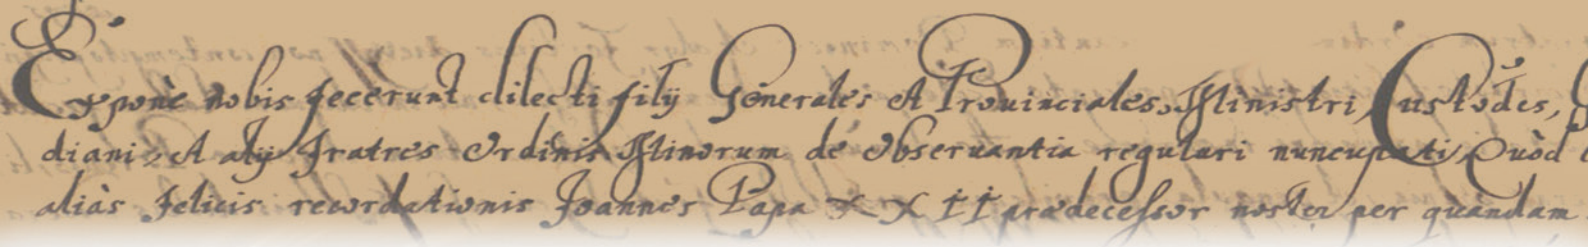 Exponi nobis fecerunt dilecti filij Generales et Prouinciales, Ministri, Custodes,
diani, et alij Fratres Ordinis Minorum de Obseruantia regulari nuncupati, Quòd
aliàs felicis recordationis Joannes Papa XXII prædecessor noster per quandam